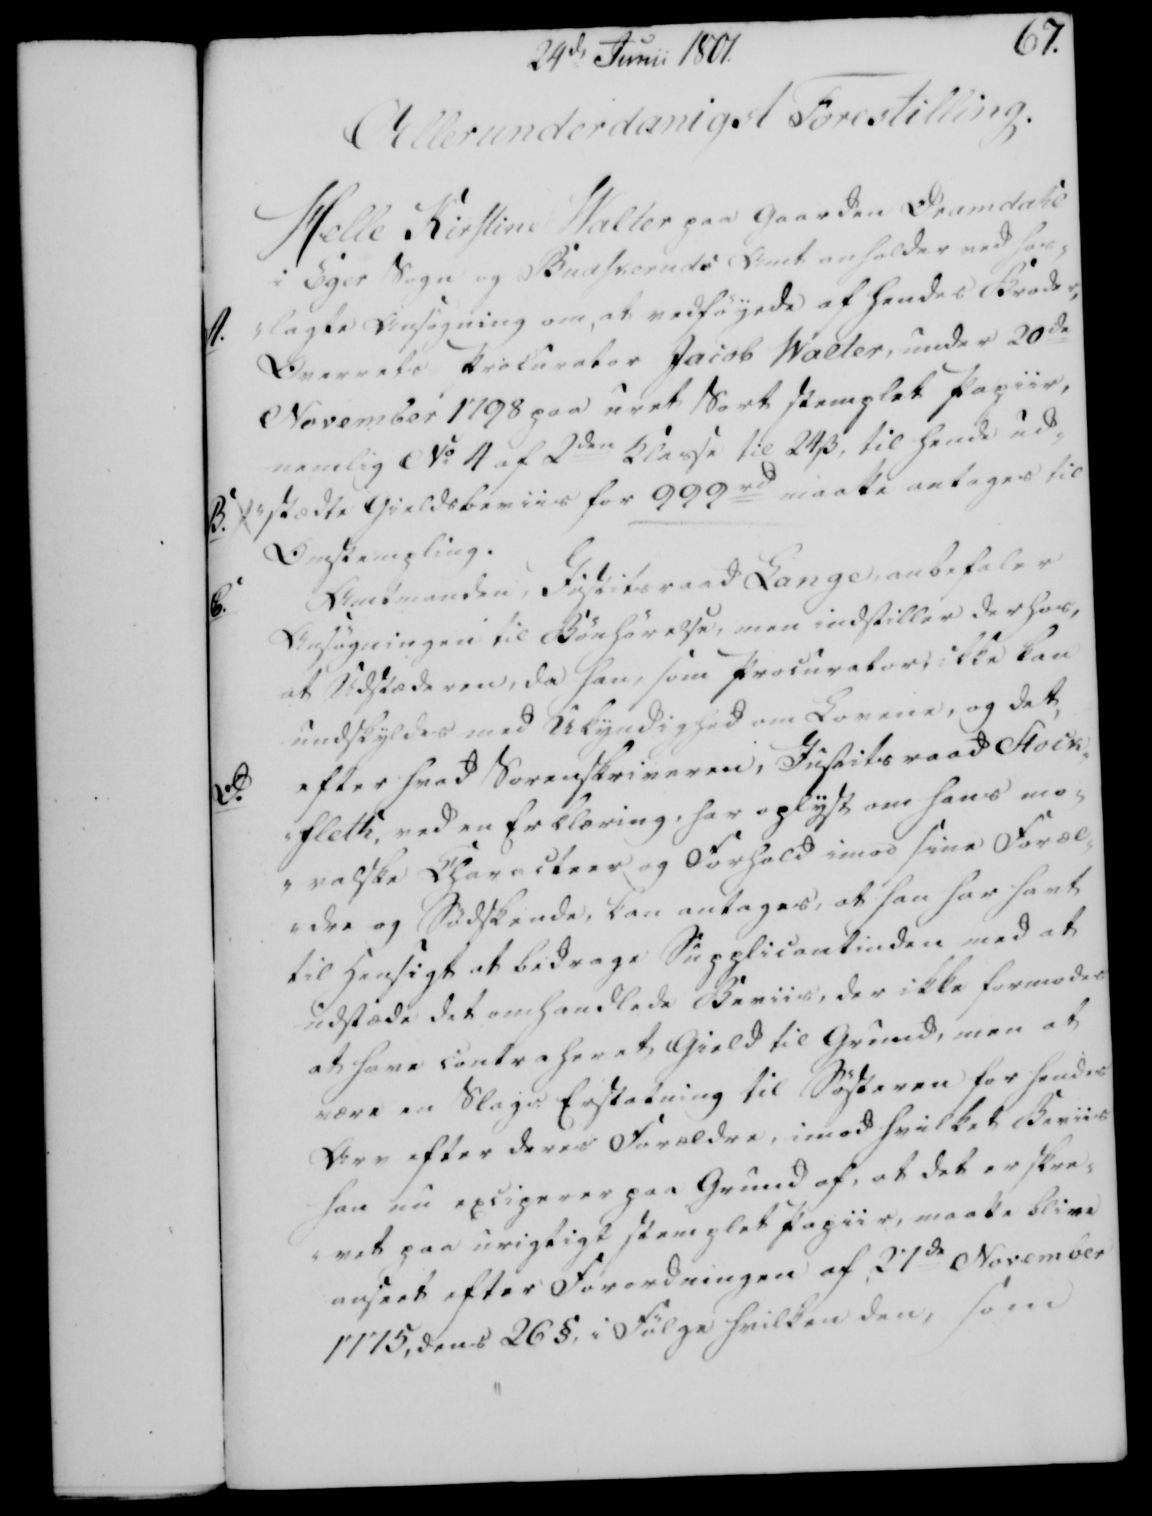 24de Junii 1801.
67.
Allerunderdanigst Forestilling.
Helle Kirstine Walter paa Gaarden Dramdahl
i Eger Sogn og Buskeruds Amt anholder ved hos„
A. „lagte Ansøgning om, at vedføyede af hendes Broder,
Overrets-Procurator Jacob Walter, under 20de
November 1798 paa uret Sort stemplet Papiir,
nemlig No 4 af 2den Klasse til 24 ß, til hende ud„
B. „stædte Gieldsbeviis for 999 rd maatte antages til
Omstempling.
C. Amtmanden, Justitsraad Lange, anbefaler
Ansøgningen til Bønhørelse, men indstiller derhos,
at Udstæderen, da han, som Procurator, ikke kan
undskyldes med Ukyndighed om Lovene, og det,
D. efter hvad Sorenskriveren, Justitsraad Stock„
„fleth, ved en Erklæring, har oplyst om hans mo„
„ralske Characteer og Forhold imod sine Foræl„
„dre og Sødskende, kan antages, at han har havt
til Hensigt at bedrage Supplicantinden med at
udstæde det omhandlede Beviis, der ikke formodes
at have contraheret Gield til Grund, men at
være en Slags Erstatning til Søsteren for hendes
Arv efter deres Forældre, imod hvilket Beviis
han nu exciperer paa Grund af, at det er skre„
„vet paa urigtigt stemplet Papiir, maatte blive
anseet efter Forordningen af 27de November
1775, dens 26 §, i Følge hvilken den, som